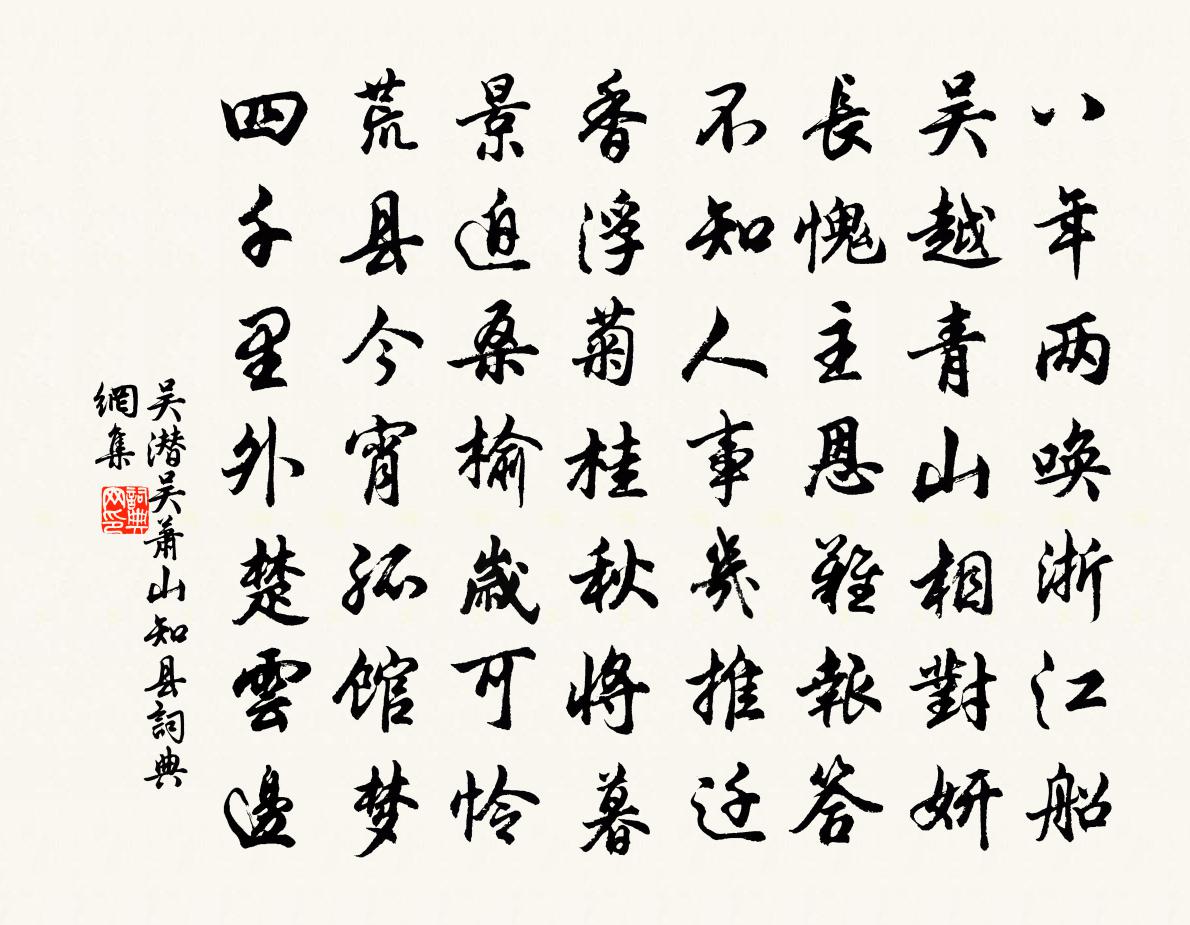 八年两唤浙江船
吴越青山相對妍
長愧主恩難報答
不知人事幾推迁
香浮菊桂秋将暮
景迫桑榆歳可怜
荒县今宵孤馆梦
四千里外楚雲邊
吴潜吴萧山知县詞典
網集
詞典
网印